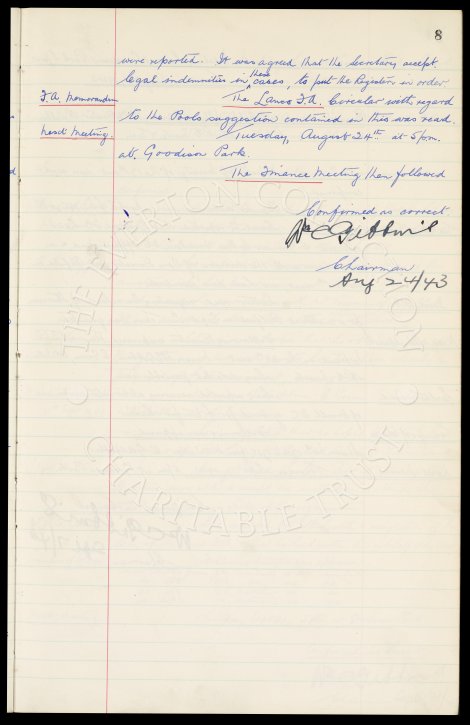 8
were reported. It was agreed that the Secretary accept
legal indemnities in these cases, to put the Registers in order
F.A. Memorandum
The Lancs F.A. Circular with regard
to the Pools suggestion contained in this was read.
Next Meeting.
Tuesday, August 24th at 5pm.
at Goodison Park.
The Finance Meeting then followed
Confirmed as correct
Wm C Gibbins
Chairman
Aug 24/43
THE EVERTON COLLECTION
CHARITABLE TRUST